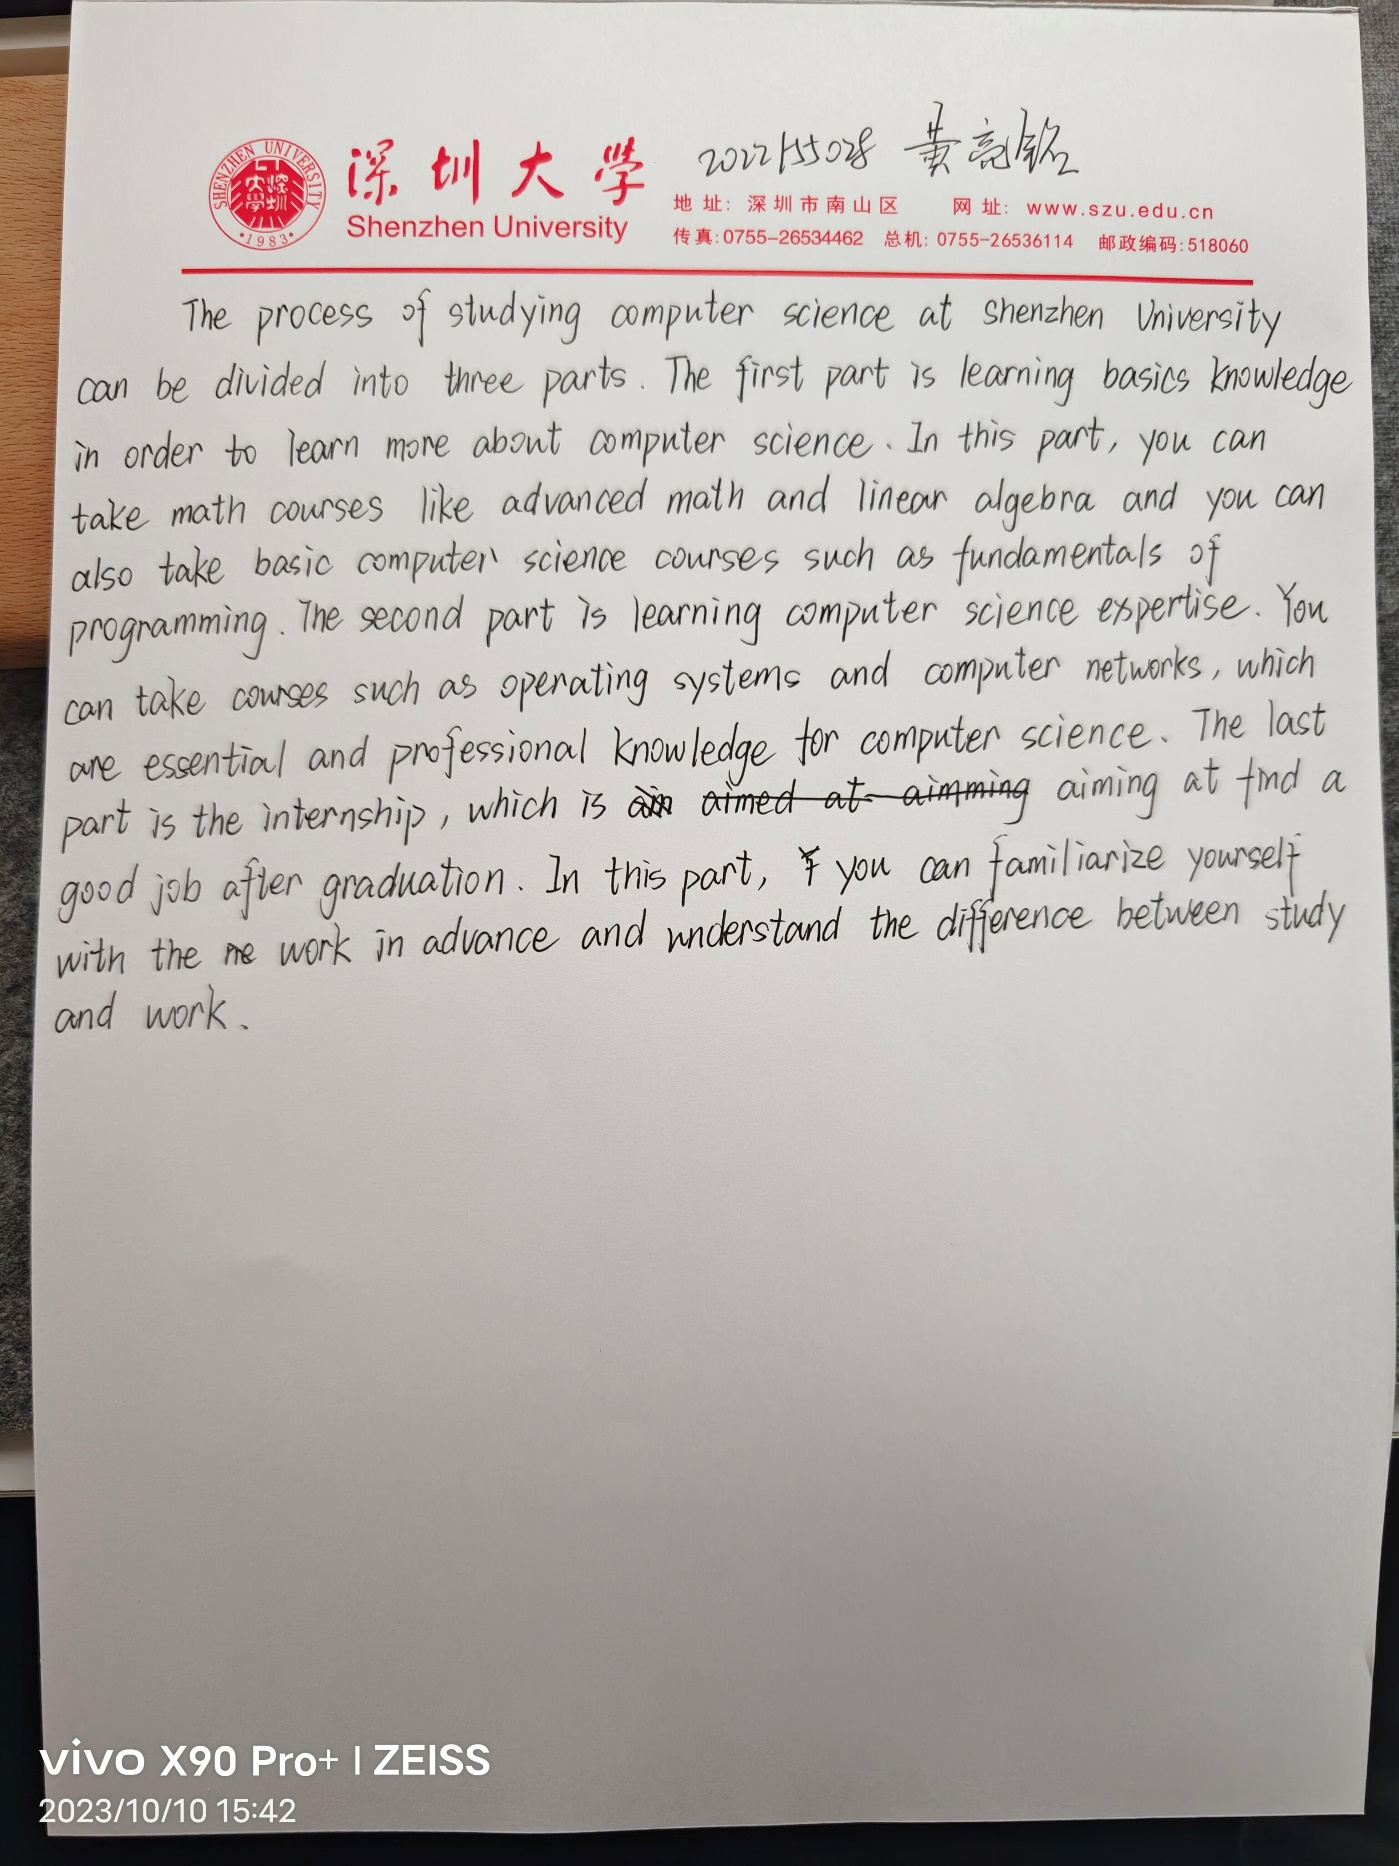 深圳大学
Shenzhen University
SHENZHEN UNIVERSITY
深圳大學
·1983·
2022155028 黄亮铭
地址: 深圳市南山区 网址: www.szu.edu.cn
传真:0755-26534462 总机: 0755-26536114 邮政编码:518060
The process of studying computer science at Shenzhen University
can be divided into three parts. The first part is learning basics knowledge
in order to learn more about computer science. In this part, you can
take math courses like advanced math and linear algebra and you can
also take basic computer science courses such as fundamentals of
programming. The second part is learning computer science expertise. You
can take courses such as operating systems and computer networks, which
are essential and professional knowledge for computer science. The last
part is the internship, which is aimed at aimming aiming at find a
good job after graduation. In this part, you can familiarize yourself
with the work in advance and understand the difference between study
and work.
vivo X90 Pro+ | ZEISS
2023/10/10 15:42